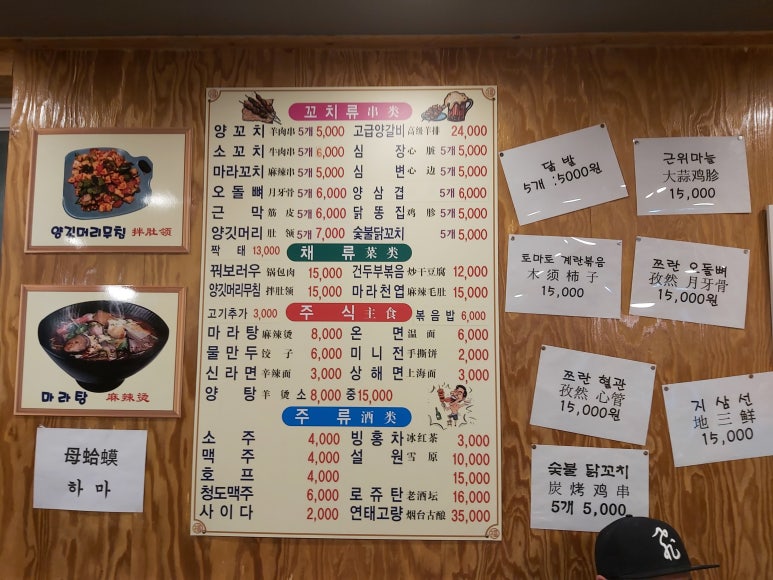 꼬치류 串 类
양 꼬 치 羊肉串 5개 5,000 고급양갈비 高级羊排 24,000
소 꼬 치 牛肉串 5개 6,000 심 장 心 脏 5개 5,000
마라꼬치 麻辣串 5개 5,000 심 변 心 边 5개 5,000
오 돌 뼈 月牙骨 5개 6,000 양 삼 겹 5개 6,000
근 막 筋 皮 5개 6,000 닭 똥 집 鸡 胗 5개 5,000
양깃머리 肚 领 5개 7,000 숯불닭꼬치 5개 5,000
짝 태 13,000
채 류 菜 类
꿔보러우 锅包肉 15,000 건두부볶음 炒干豆腐 12,000
양깃머리무침 拌肚领 15,000 마라천엽 麻辣毛肚 15,000
고기추가 3,000
주 식 主 食
볶음밥 6,000
마 라 탕 麻辣烫 8,000 온 면 温 面 6,000
물 만 두 饺 子 6,000 미 니 전 手撕饼 2,000
신 라 면 辛辣面 3,000 상 해 면 上海面 3,000
양 탕 羊 烫 소 8,000 중 15,000
주 류 酒 类
소 주 4,000 빙 홍 차 冰红茶 3,000
맥 주 4,000 설 원 雪 原 10,000
호 프 4,000 15,000
청도맥주 6,000 로 쥬 탄 老酒坛 16,000
사 이 다 2,000 연태고량 烟台古酿 35,000
양깃머리무침 拌肚领
마라탕 麻辣烫
母蛤蟆
하 마
닭 발
5개 : 5000원
근위마늘
大蒜鸡胗
15,000
토마토 계란볶음
木 须 柿 子
15,000
쯔란 오돌뼈
孜然 月牙骨
15,000원
쯔란 혈관
孜然 心管
15,000원
지 삼 선
地 三 鲜
15,000
숯불 닭꼬치
炭 烤 鸡 串
5개 5,000